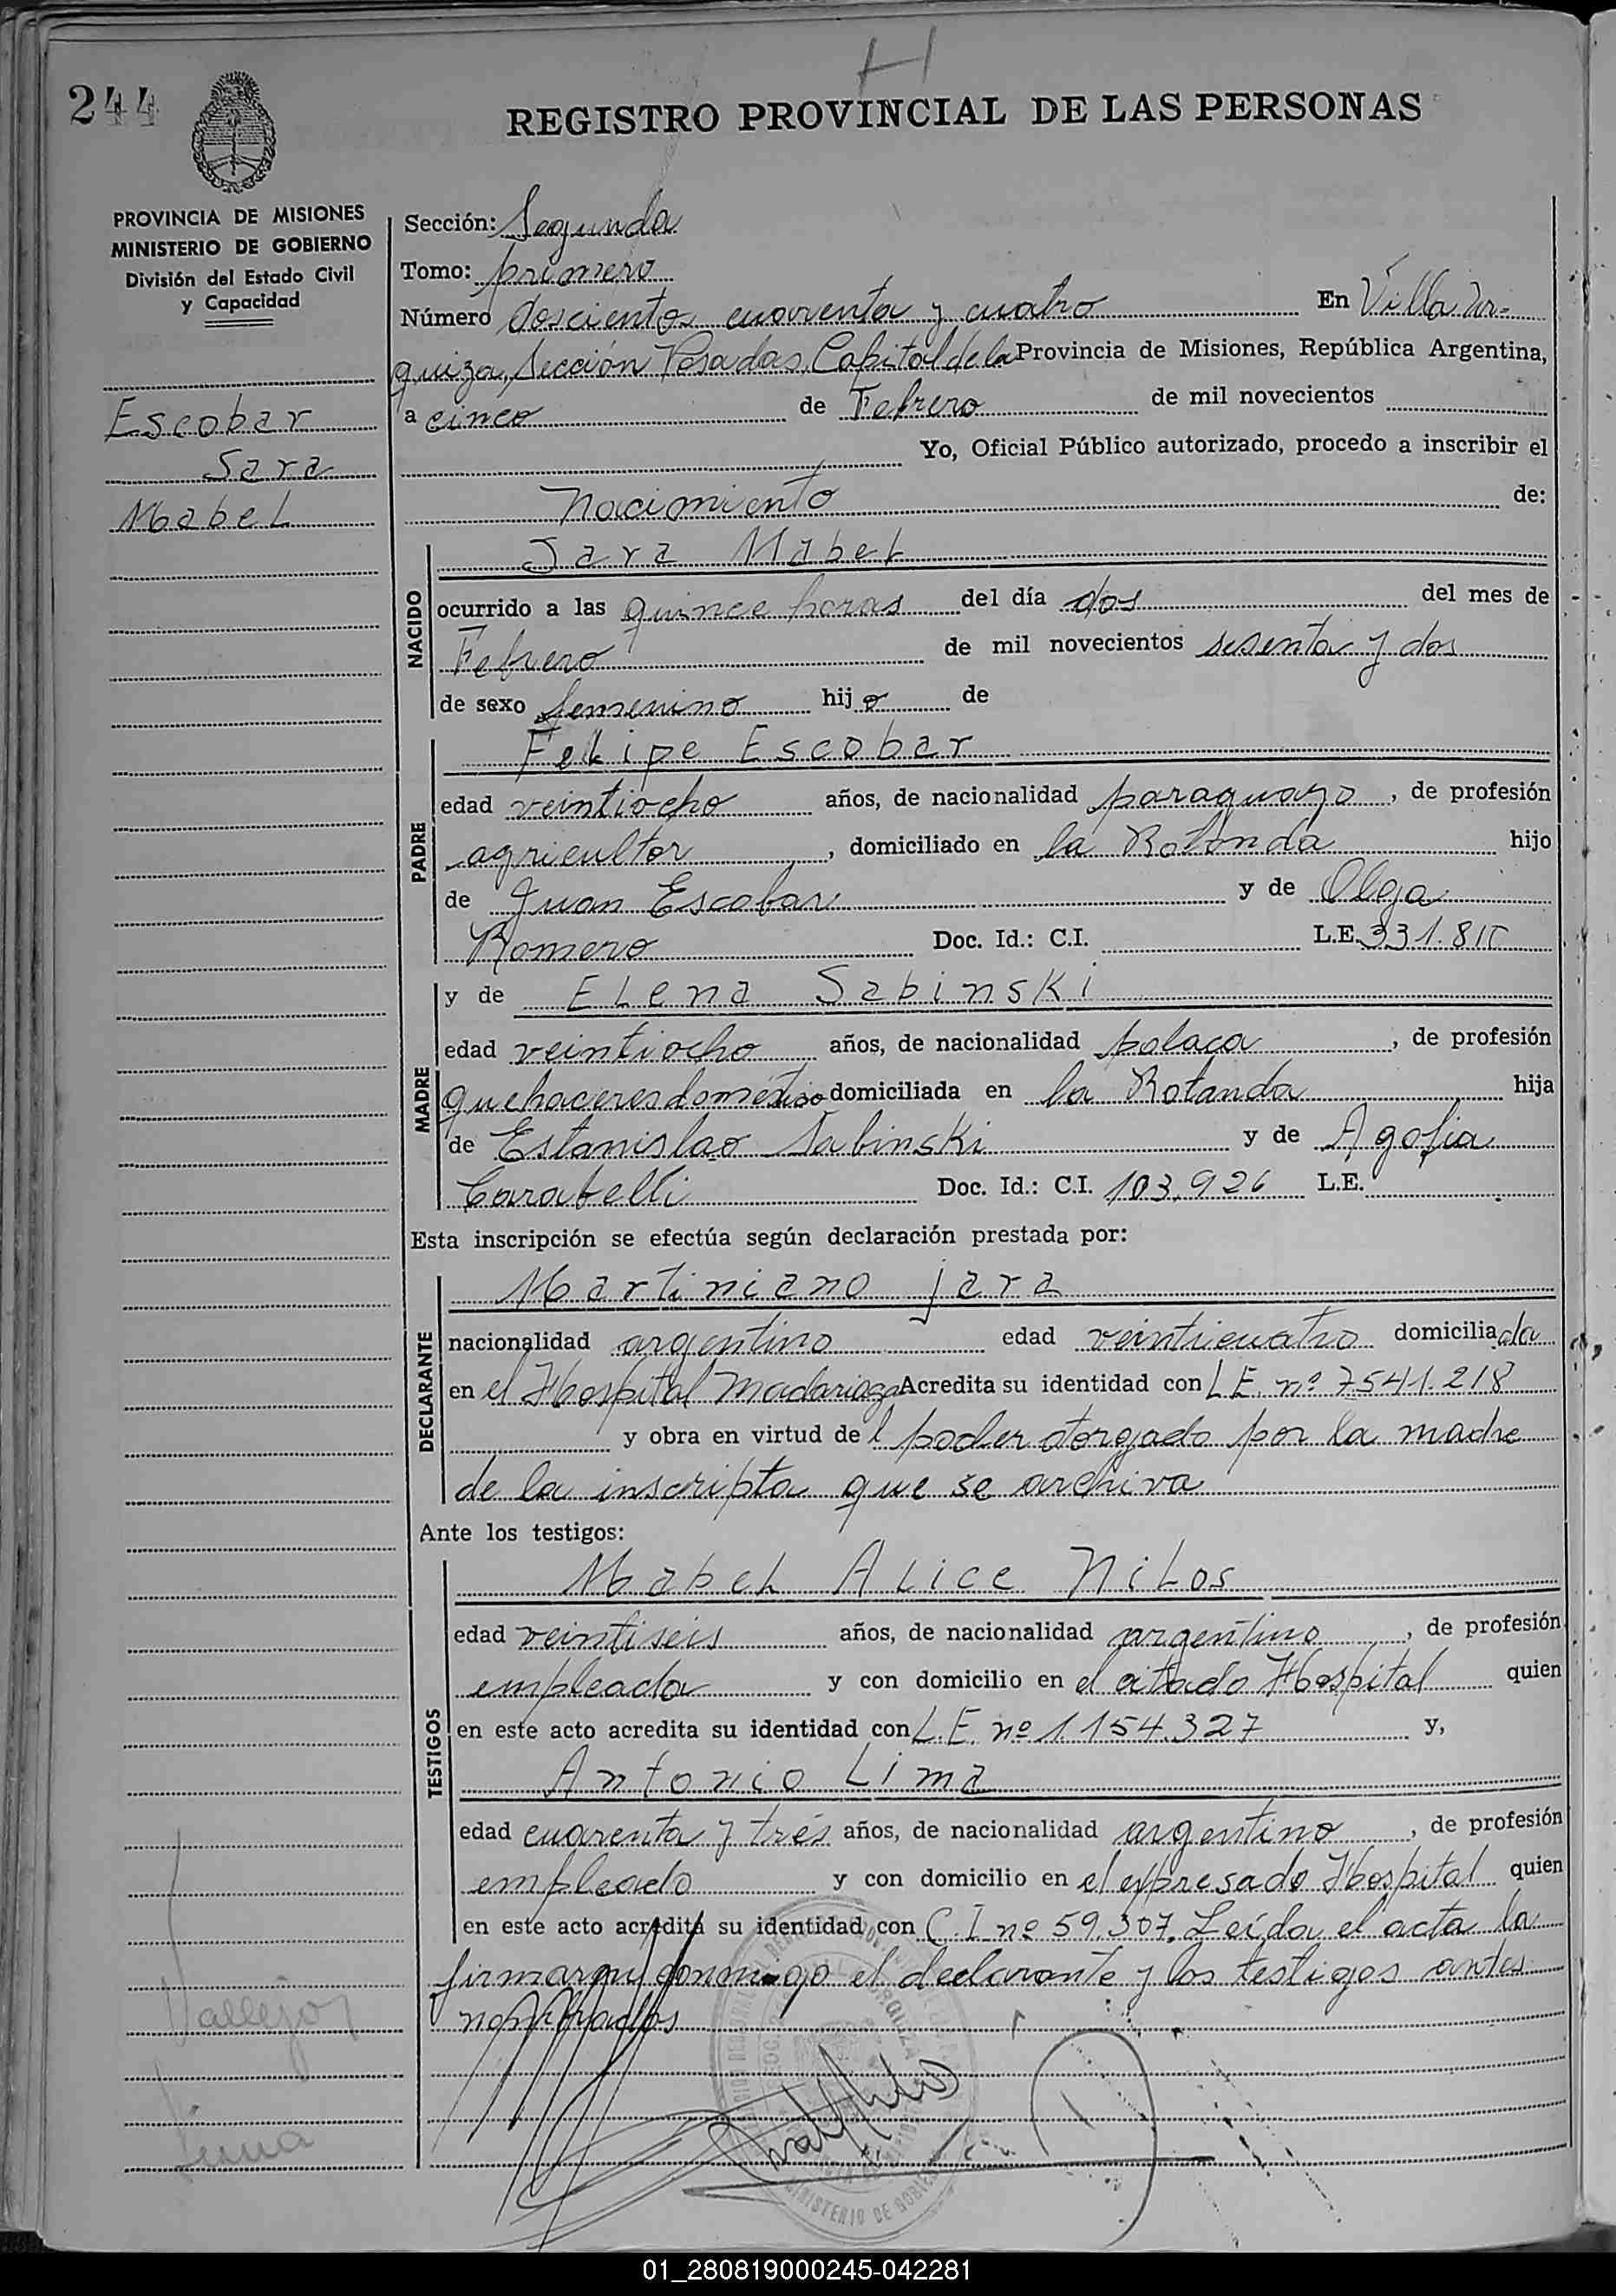 H
244
REGISTRO PROVINCIAL DE LAS PERSONAS
PROVINCIA DE MISIONES
MINISTERIO DE GOBIERNO
División del Estado Civil
y Capacidad
Escobar
Sara
Mabel
Sección: Segunda
Tomo: primero
Número doscientos cuarenta y cuatro En Villa Ur-
quiza, Sección Posadas, Capital de la Provincia de Misiones, República Argentina,
a cinco de Febrero de mil novecientos
Yo, Oficial Público autorizado, procedo a inscribir el
Nacimiento de:
NACIDO
Sara Mabel
ocurrido a las quince horas del día dos del mes de
Febrero de mil novecientos sesenta y dos
de sexo femenino hija de
PADRE
Felipe Escobar
edad veintiocho años, de nacionalidad paraguayo, de profesión
agricultor, domiciliado en la Rotonda hijo
de Juan Escobar y de Olga
Romero Doc. Id.: C.I. L.E. 331.81
MADRE
y de Elena Sabinski
edad veintiocho años, de nacionalidad polaca, de profesión
quehaceres doméstico domiciliada en la Rotonda hija
de Estanislao Sabinski y de Agofia
Carabelli Doc. Id.: C.I. 103.926 L.E.
Esta inscripción se efectúa según declaración prestada por:
DECLARANTE
Martiniano Jara
nacionalidad argentino edad veinticuatro domiciliado
en el Hospital Madariaga Acredita su identidad con L E. nº 7541.218
y obra en virtud del poder otorgado por la madre
de la inscripta que se archiva
Ante los testigos:
TESTIGOS
Mabel Alice Nilos
edad veintiseis años, de nacionalidad argentino, de profesión
empleada y con domicilio en el citado Hospital quien
en este acto acredita su identidad con L.E. nº 1.154.327 y,
Antonio Lima
edad cuarenta y tres años, de nacionalidad argentino, de profesión
empleado y con domicilio en el expresado Hospital quien
en este acto acredita su identidad con C.I nº 59.307. Leída el acta la
firmaron conmigo el declarante y los testigos antes
nombrados
Vallejos
Lima
MINISTERIO DE GOBIERNO
01_280819000245-042281